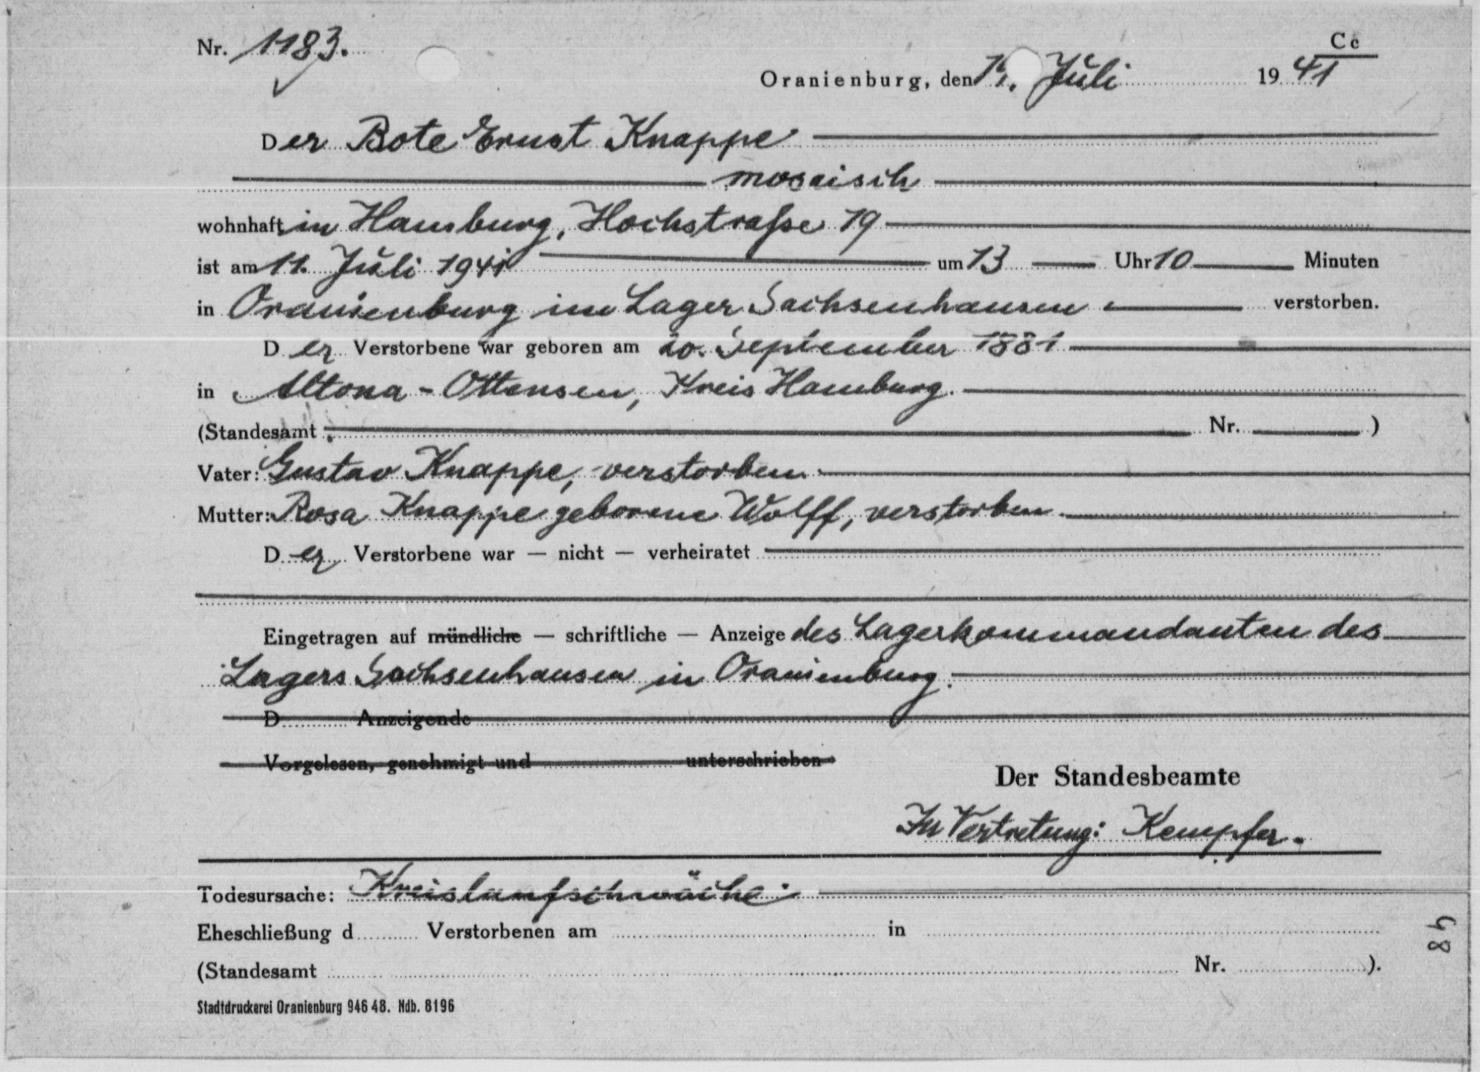 Nr. 1183.
Cc
Oranienburg, den Juli 1941
Der Bote Ernst Knappe
mosaisch
wohnhaft in Hamburg, Hochstraße 19
ist am 11. Juli 1941 um 13 Uhr 10 Minuten
in Oranienburg im Lager Sachsenhausen verstorben.
Der Verstorbene war geboren am 20. September 1881
in Altona - Ottensen, Kreis Hamburg.
(Standesamt Nr. )
Vater: Gustav Knappe, verstorben
Mutter: Rosa Knappe geborene Wolff, verstorben
Der Verstorbene war — nicht — verheiratet
Eingetragen auf mündliche — schriftliche — Anzeige des Lagerkommandanten des
Lagers Sachsenhausen in Oranienburg.
D Anzeigende
Vorgelesen, genehmigt und unterschrieben
Der Standesbeamte
In Vertretung: Kempfer.
Todesursache: Kreislaufschwäche
Eheschließung d Verstorbenen am in
(Standesamt Nr. ).
Stadtdruckerei Oranienburg 946 48. Ndb. 8196
48